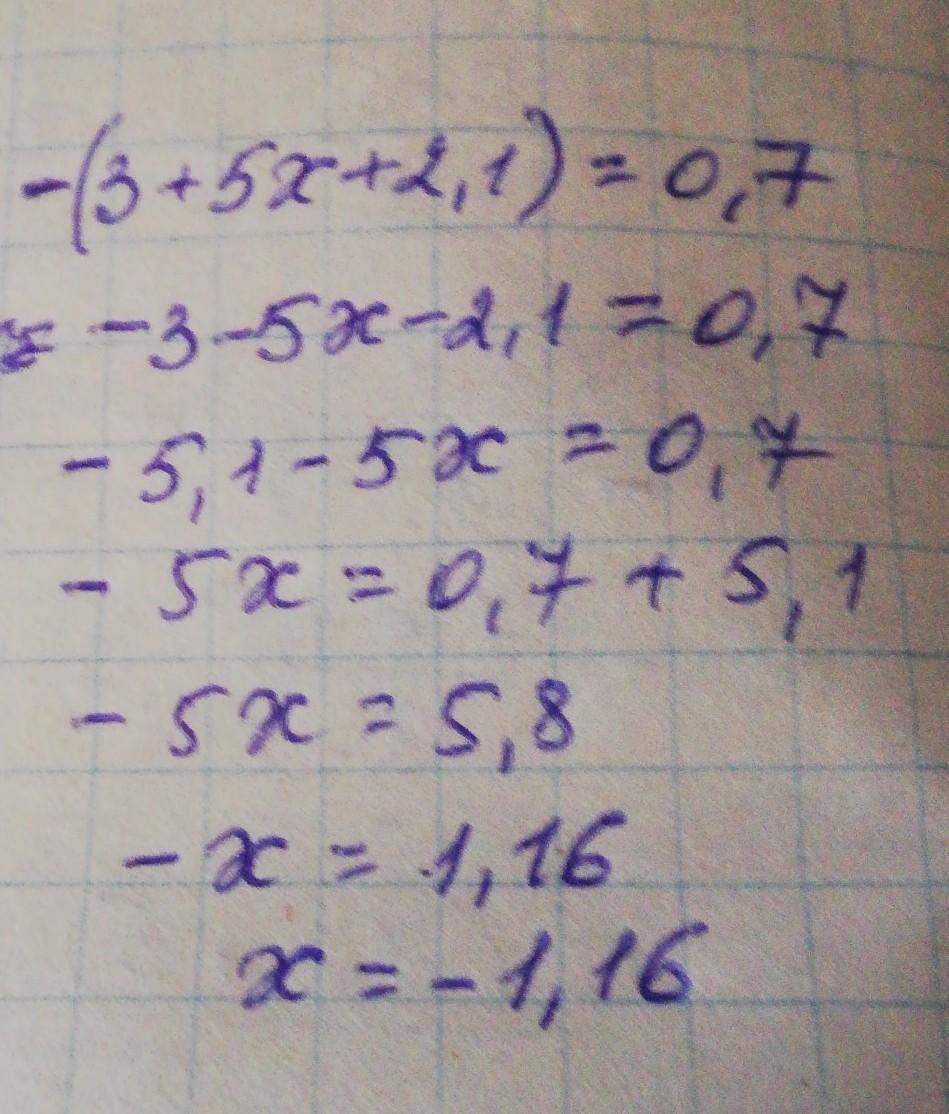 -(3+5x+2,1)=0,7
= -3-5x-2,1=0,7
-5,1-5x=0,7
-5x=0,7+5,1
-5x=5,8
-x=1,16
x=-1,16